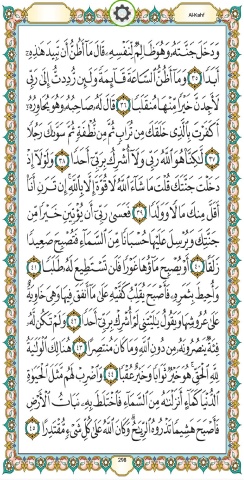 Al-Kahf
وَدَخَلَ جَنَّتَهُ وَهُوَ ظَالِمٌ لِّنَفْسِهِ قَالَ مَا أَظُنُّ أَن تَبِيدَ هَٰذِهِ
أَبَدًا ٣٥ وَمَا أَظُنُّ السَّاعَةَ قَائِمَةً وَلَئِن رُّدِدتُّ إِلَىٰ رَبِّي
لَأَجِدَنَّ خَيْرًا مِّنْهَا مُنقَلَبًا ٣٦ قَالَ لَهُ صَاحِبُهُ وَهُوَ يُحَاوِرُهُ
أَكَفَرْتَ بِالَّذِي خَلَقَكَ مِن تُرَابٍ ثُمَّ مِن نُّطْفَةٍ ثُمَّ سَوَّاكَ رَجُلًا
٣٧ لَّٰكِنَّا هُوَ اللَّهُ رَبِّي وَلَا أُشْرِكُ بِرَبِّي أَحَدًا ٣٨ وَلَوْلَا إِذْ
دَخَلْتَ جَنَّتَكَ قُلْتَ مَا شَاءَ اللَّهُ لَا قُوَّةَ إِلَّا بِاللَّهِ إِن تَرَنِ أَنَا
أَقَلَّ مِنكَ مَالًا وَوَلَدًا ٣٩ فَعَسَىٰ رَبِّي أَن يُؤْتِيَنِ خَيْرًا مِّن
جَنَّتِكَ وَيُرْسِلَ عَلَيْهَا حُسْبَانًا مِّنَ السَّمَاءِ فَتُصْبِحَ صَعِيدًا
زَلَقًا ٤٠ أَوْ يُصْبِحَ مَاؤُهَا غَوْرًا فَلَن تَسْتَطِيعَ لَهُ طَلَبًا ٤١
وَأُحِيطَ بِثَمَرِهِ فَأَصْبَحَ يُقَلِّبُ كَفَّيْهِ عَلَىٰ مَا أَنفَقَ فِيهَا وَهِيَ خَاوِيَةٌ
عَلَىٰ عُرُوشِهَا وَيَقُولُ يَا لَيْتَنِي لَمْ أُشْرِكْ بِرَبِّي أَحَدًا ٤٢ وَلَمْ تَكُن لَّهُ
فِئَةٌ يَنصُرُونَهُ مِن دُونِ اللَّهِ وَمَا كَانَ مُنتَصِرًا ٤٣ هُنَالِكَ الْوَلَايَةُ
لِلَّهِ الْحَقِّ هُوَ خَيْرٌ ثَوَابًا وَخَيْرٌ عُقْبًا ٤٤ وَاضْرِبْ لَهُم مَّثَلَ الْحَيَاةِ
الدُّنْيَا كَمَاءٍ أَنزَلْنَاهُ مِنَ السَّمَاءِ فَاخْتَلَطَ بِهِ نَبَاتُ الْأَرْضِ
فَأَصْبَحَ هَشِيمًا تَذْرُوهُ الرِّيَاحُ وَكَانَ اللَّهُ عَلَىٰ كُلِّ شَيْءٍ مُّقْتَدِرًا ٤٥
298